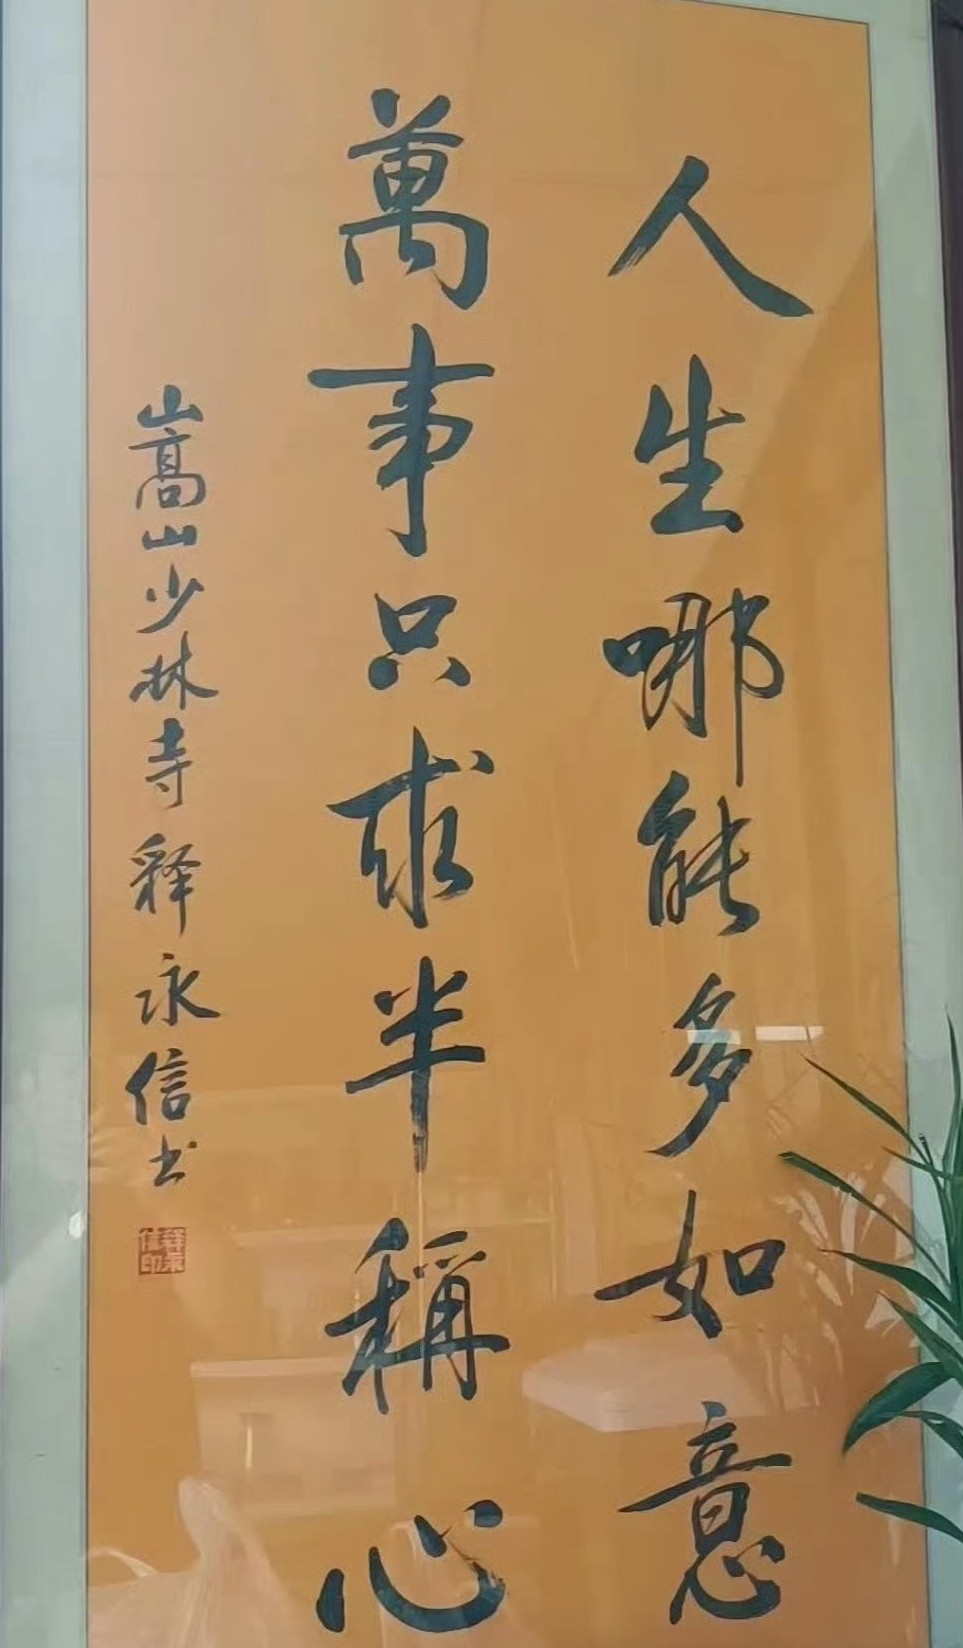 人生哪能多如意
萬事只求半稱心
嵩山少林寺释永信书
释永信印